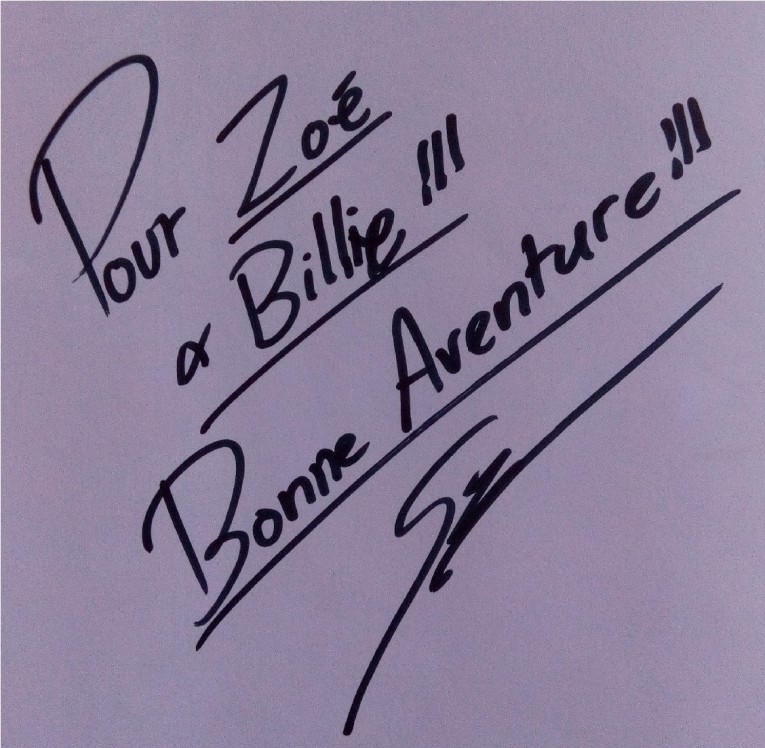 Pour Zoé
& Billie !!!
Bonne Aventure !!!